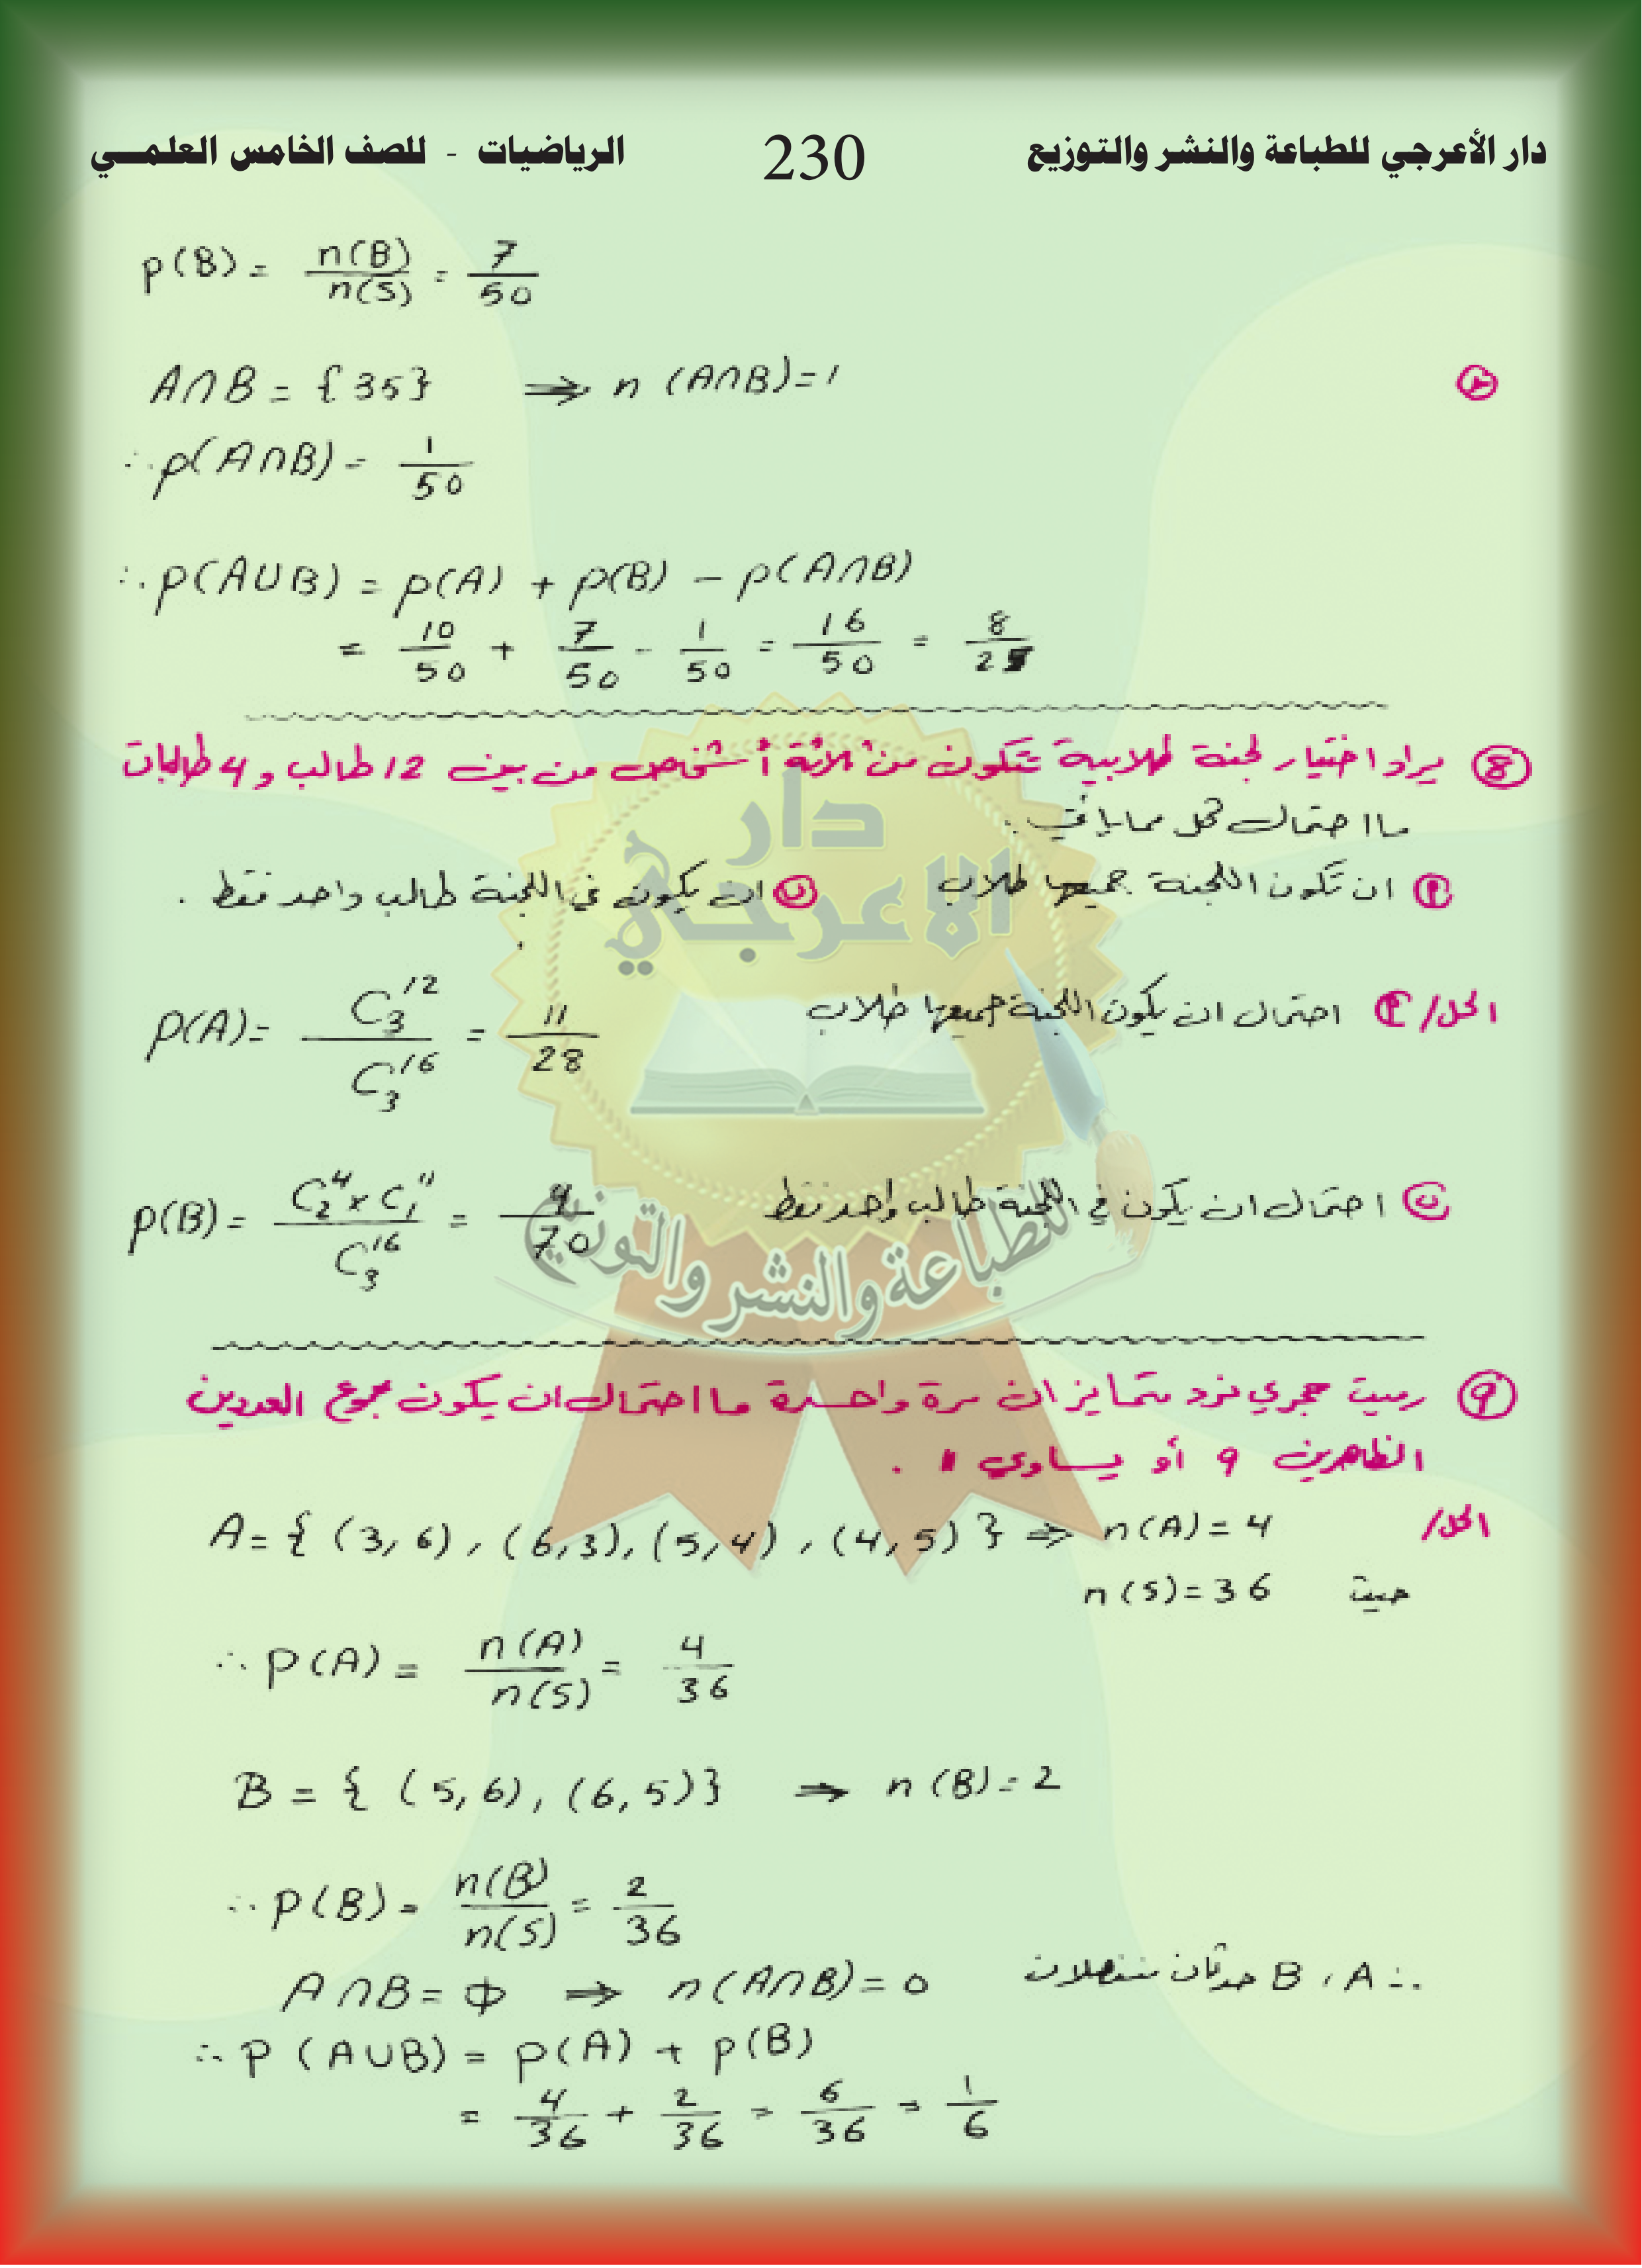 دار الأعرجي للطباعة والنشر والتوزيع 230 الرياضيات - للصف الخامس العلمي
p(B) = n(B)/n(S) = 7/50
A∩B = {35} ⇒ n(A∩B)=1
∴ p(A∩B) = 1/50
∴ p(A∪B) = p(A) + p(B) − p(A∩B)
= 10/50 + 7/50 − 1/50 = 16/50 = 8/25
⑧ يراد اختيار لجنة طلابية تتكون من ثلاثة أشخاص من بين 12 طالب و 4 طالبات
ما احتمال كل مما يأتي :
Ⓟ ان تكون اللجنة جميعها طلاب ⓤ ان يكون في اللجنة طالب واحد فقط .
الحل / Ⓟ احتمال ان يكون اللجنة جميعها طلاب P(A) = C₃¹²/C₃¹⁶ = 11/28
ⓤ احتمال ان يكون في اللجنة طالب واحد فقط p(B) = C₂⁴ × C₁¹¹/C₃¹⁶ = 9/70
⑨ رميت حجري نرد متمايزان مرة واحدة ما احتمال ان يكون مجموع العددين
الظاهرين 9 أو يساوي 11 .
الحل / A = { (3,6) , (6,3), (5,4) , (4,5) } ⇒ n(A) = 4
حيث n(S) = 36
∴ P(A) = n(A)/n(S) = 4/36
B = { (5,6), (6,5)} ⇒ n(B) = 2
∴ P(B) = n(B)/n(S) = 2/36
A∩B = Φ ⇒ n(A∩B) = 0 ∴ A ، B حدثان منفصلان
∴ P(A∪B) = p(A) + p(B)
= 4/36 + 2/36 = 6/36 = 1/6
دار
الاعرجي
للطباعة والنشر والتوزيع